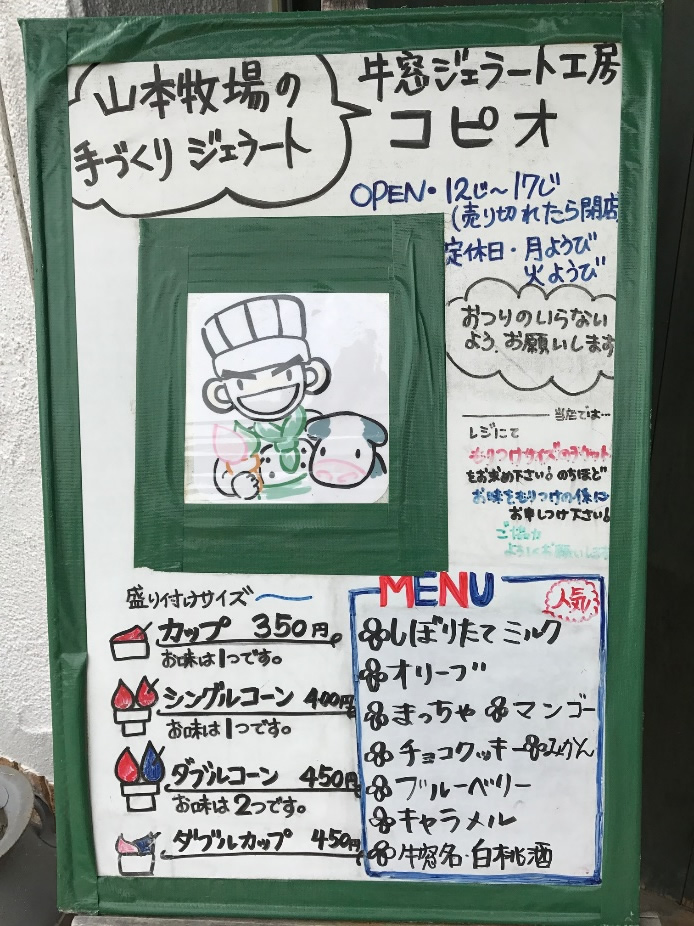 山本牧場の
手づくり ジェラート
牛窓ジェラート工房
コピオ
OPEN・12じ〜17じ
(売り切れたら閉店
定休日・月ようび
火ようび
おつりのいらない
よう、お願いします
当店では…
レジにて
もりつけサイズのチケット
をお求め下さい♪のちほど
お味をもりつけの係に
お申しつけ下さい♪
ご協力
よろしくお願いします
盛り付けサイズ
カップ 350円
お味は1つです。
シングルコーン 400円
お味は1つです。
ダブルコーン 450円
お味は2つです。
ダブルカップ 450円
MENU
人気
しぼりたてミルク
オリーブ
まっちゃ マンゴー
チョコクッキー みかん
ブルーベリー
キャラメル
牛窓名・白桃酒